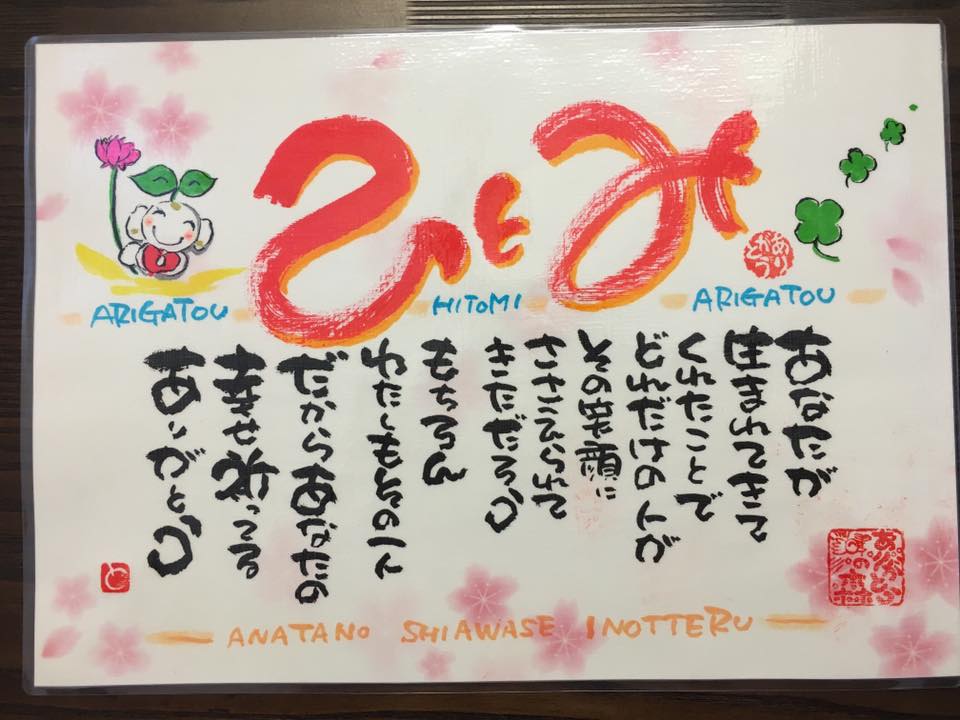 ひとみ
ありがとう
ARIGATOU HITOMI ARIGATOU
あなたが
生まれてきて
くれたことで
どれだけの人が
その笑顔に
ささえられて
きただろう
もちろん
わたしもその一人
だからあなたの
幸せ祈ってる
ありがとう
ANATANO SHIAWASE INOTTERU